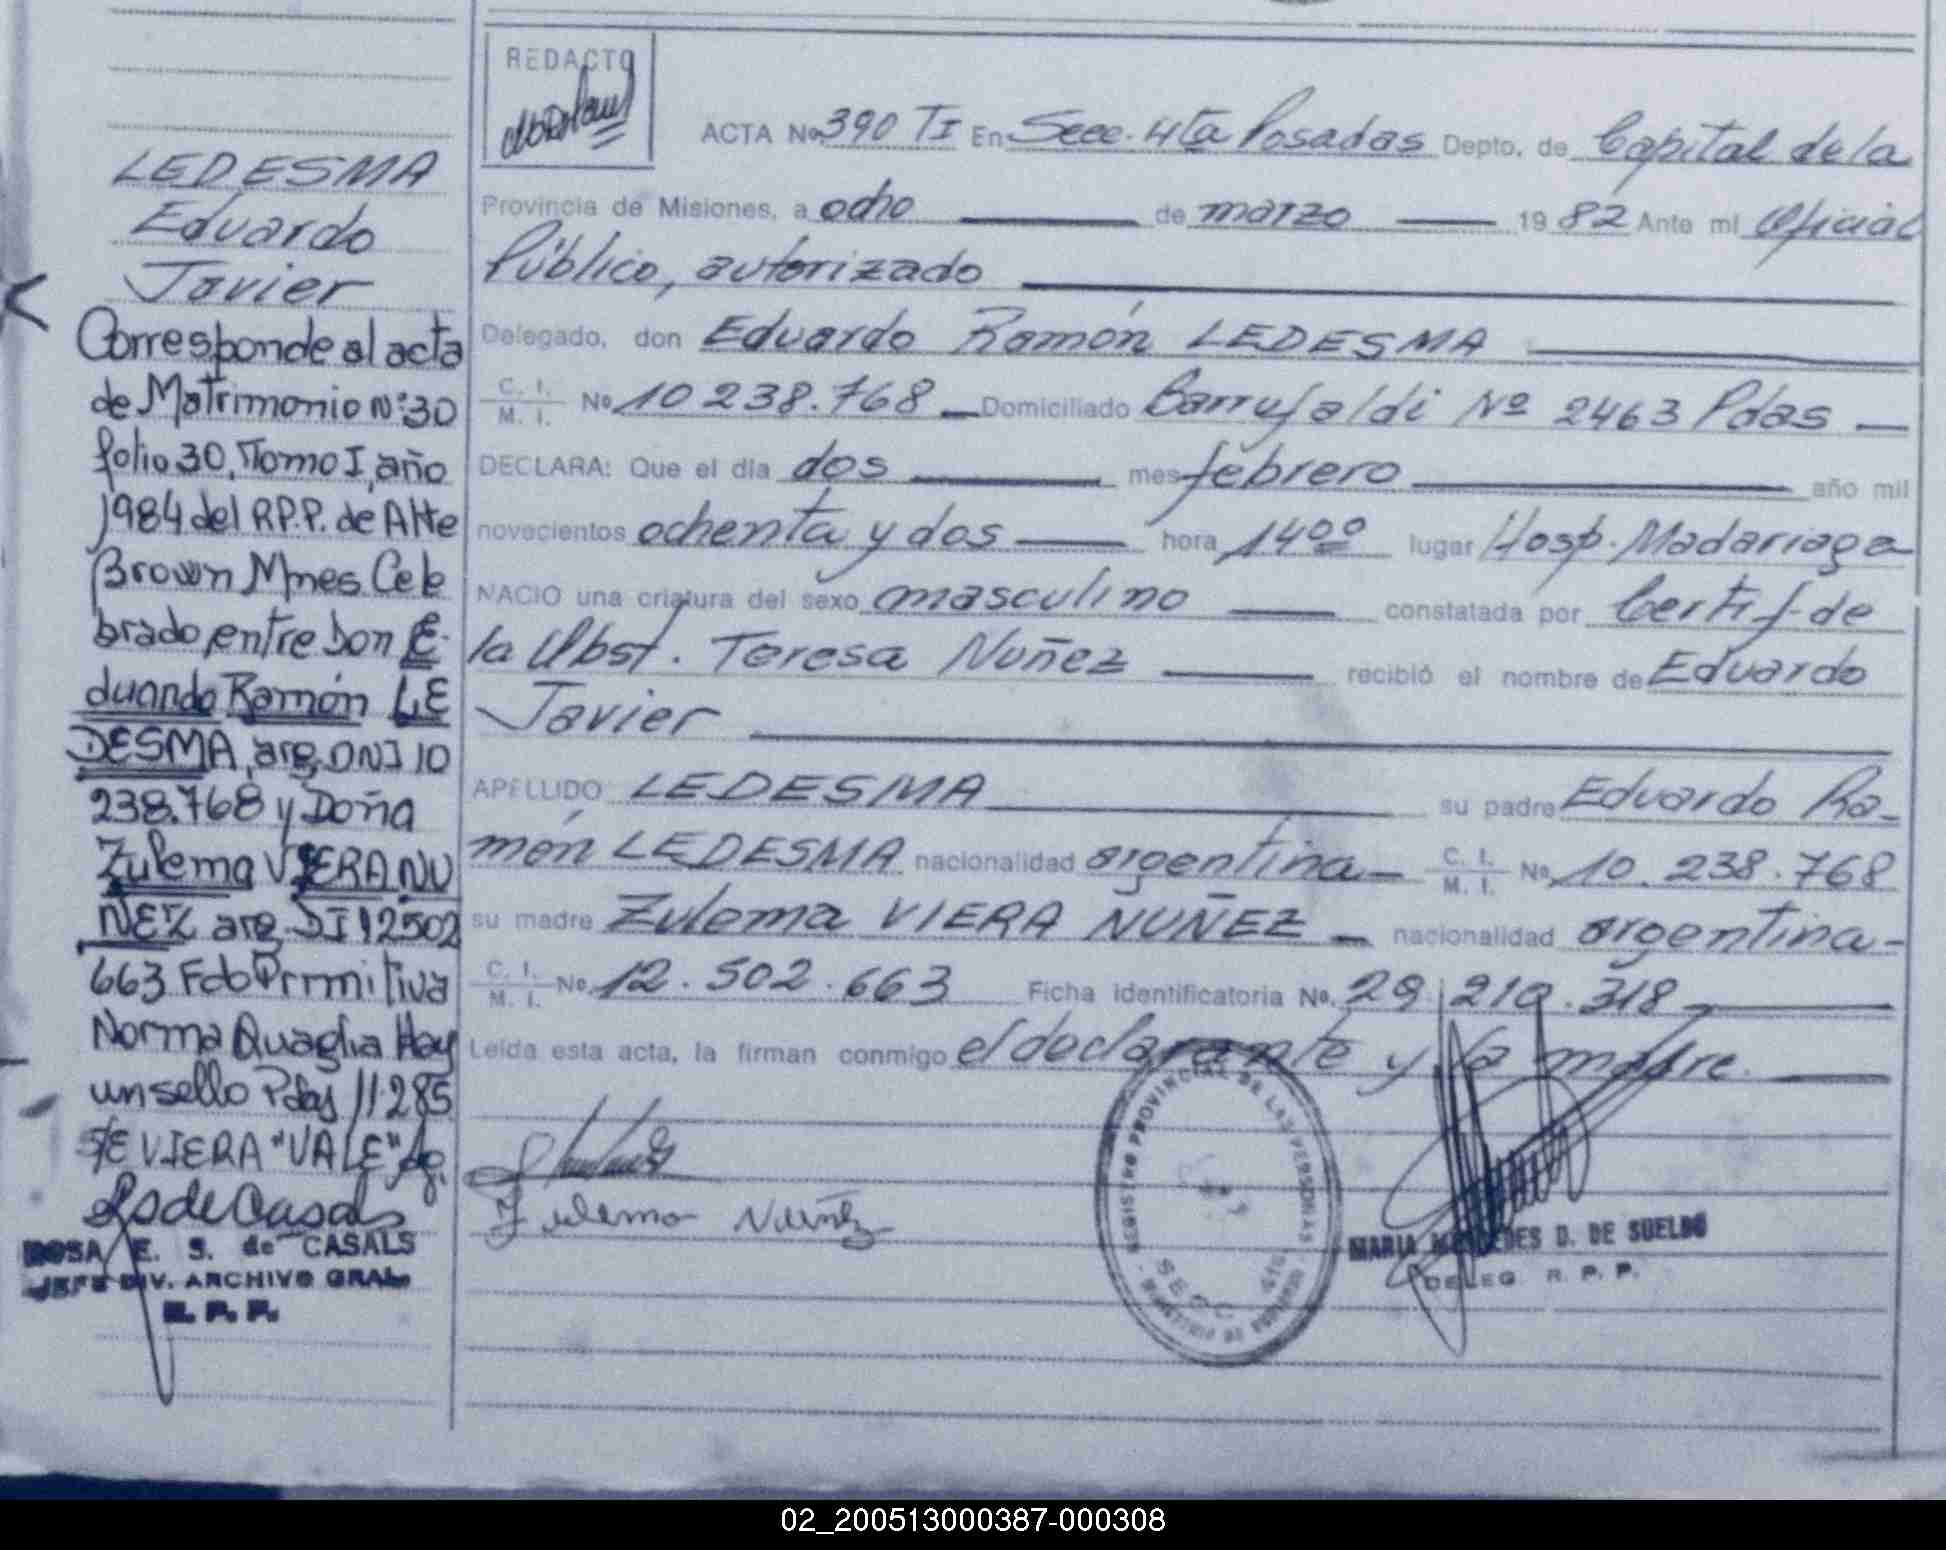 LEDESMA
Eduardo
Javier
Corresponde al acta
de Matrimonio Nº 30
folio 30, Tomo I, año
1984 del R.P.P. de Alte
Brown Mnes Cele
brado entre Don E-
duardo Ramón LE
DESMA, arg. DNI 10
238.768 y Doña
Zulema VIERA NU
ÑEZ arg. DI 12502
663 Fdo Primitiva
Norma Quaglia Hay
un sello Pdas 11.2.85
S/E VIERA "VALE"
ROSA E. S. de CASALS
JEFE DIV. ARCHIVO GRAL.
R. P. P.
REDACTO
ACTA No. 390 TI En Secc. 4ta Posadas Depto. de Capital de la
Provincia de Misiones, a ocho de marzo 1982 Ante mi Oficial
Público, autorizado
Delegado, don Eduardo Ramón LEDESMA
C. I. / M. I. No 10 238.768 Domiciliado Barrufaldi Nº 2463 Pdas
DECLARA: Que el dia dos mes febrero año mil
novecientos ochenta y dos hora 14oo lugar Hosp. Madariaga
NACIO una criatura del sexo masculino constatada por Certif. de
la Obst. Teresa Nuñez recibió el nombre de Eduardo
Javier
APELLIDO LEDESMA su padre Eduardo Ra-
món LEDESMA nacionalidad argentina C. I. / M. I. No. 10.238.768
su madre Zulema VIERA NUÑEZ nacionalidad argentina
C. I. / M. I. No. 12.502.663 Ficha identificatoria No. 29.210.318
Leída esta acta, la firman conmigo el declarante y la madre.
Zulema Nuñez
REGISTRO PROVINCIAL DE LAS PERSONAS
SECC. 4ta
MARIA MERCEDES D. DE SUELDO
DELEG R. P. P.
02_200513000387-000308